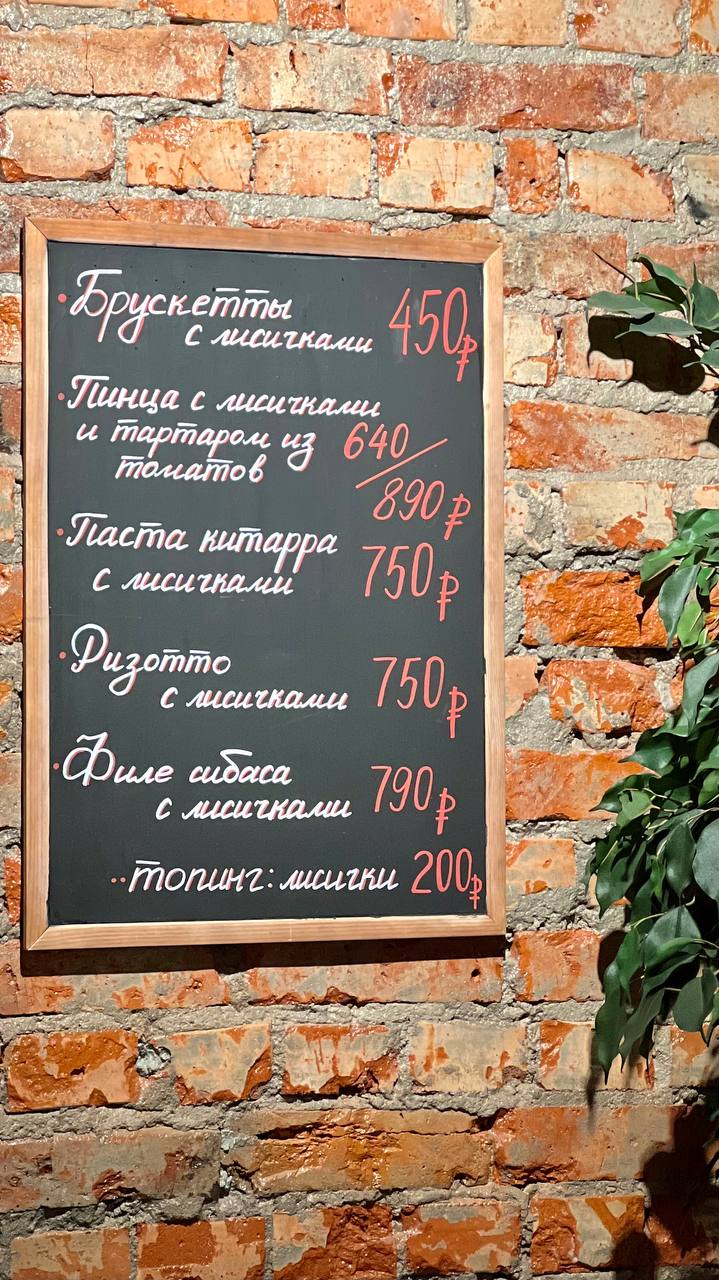 ·Брускетты
с лисичками 450₽
·Пинца с лисичками
и тартаром из 640/
томатов
890₽
·Паста китарра
с лисичками 750₽
·Ризотто
с лисичками 750₽
·Филе сибаса
с лисичками 790₽
··топинг: лисички 200₽